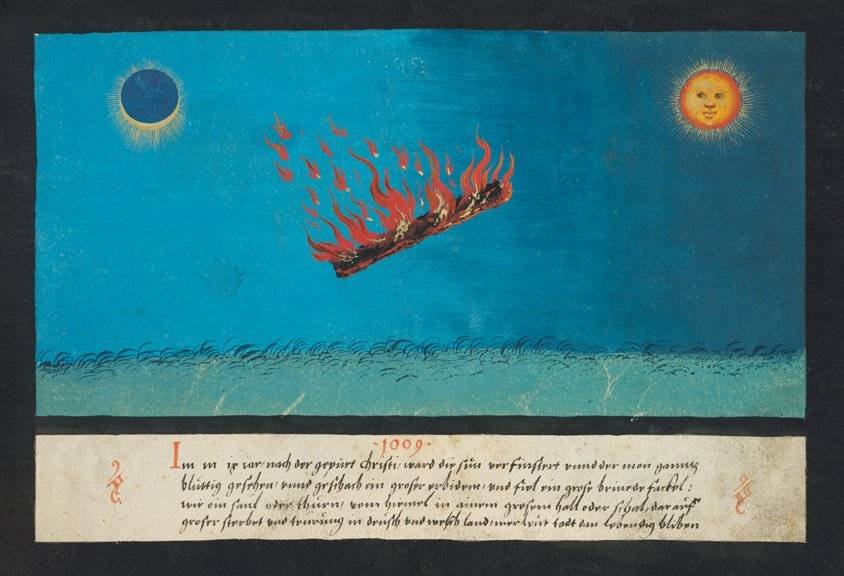 1009
Im m ix iar, nach der gepurt Christi, ward die sun verfinstert vnnd der mon ganntz
bluttig gesehen, vnnd geschach ein groser erbidem, vnd fiel ein grose brinede fackel:
wie ein saul oder thurn, vom hiemel in ainem grosem hall oder schal, dar auff
groser sterbet vnd teurung in deusch vnd welsch land, mer leut todt den lebendig bliben